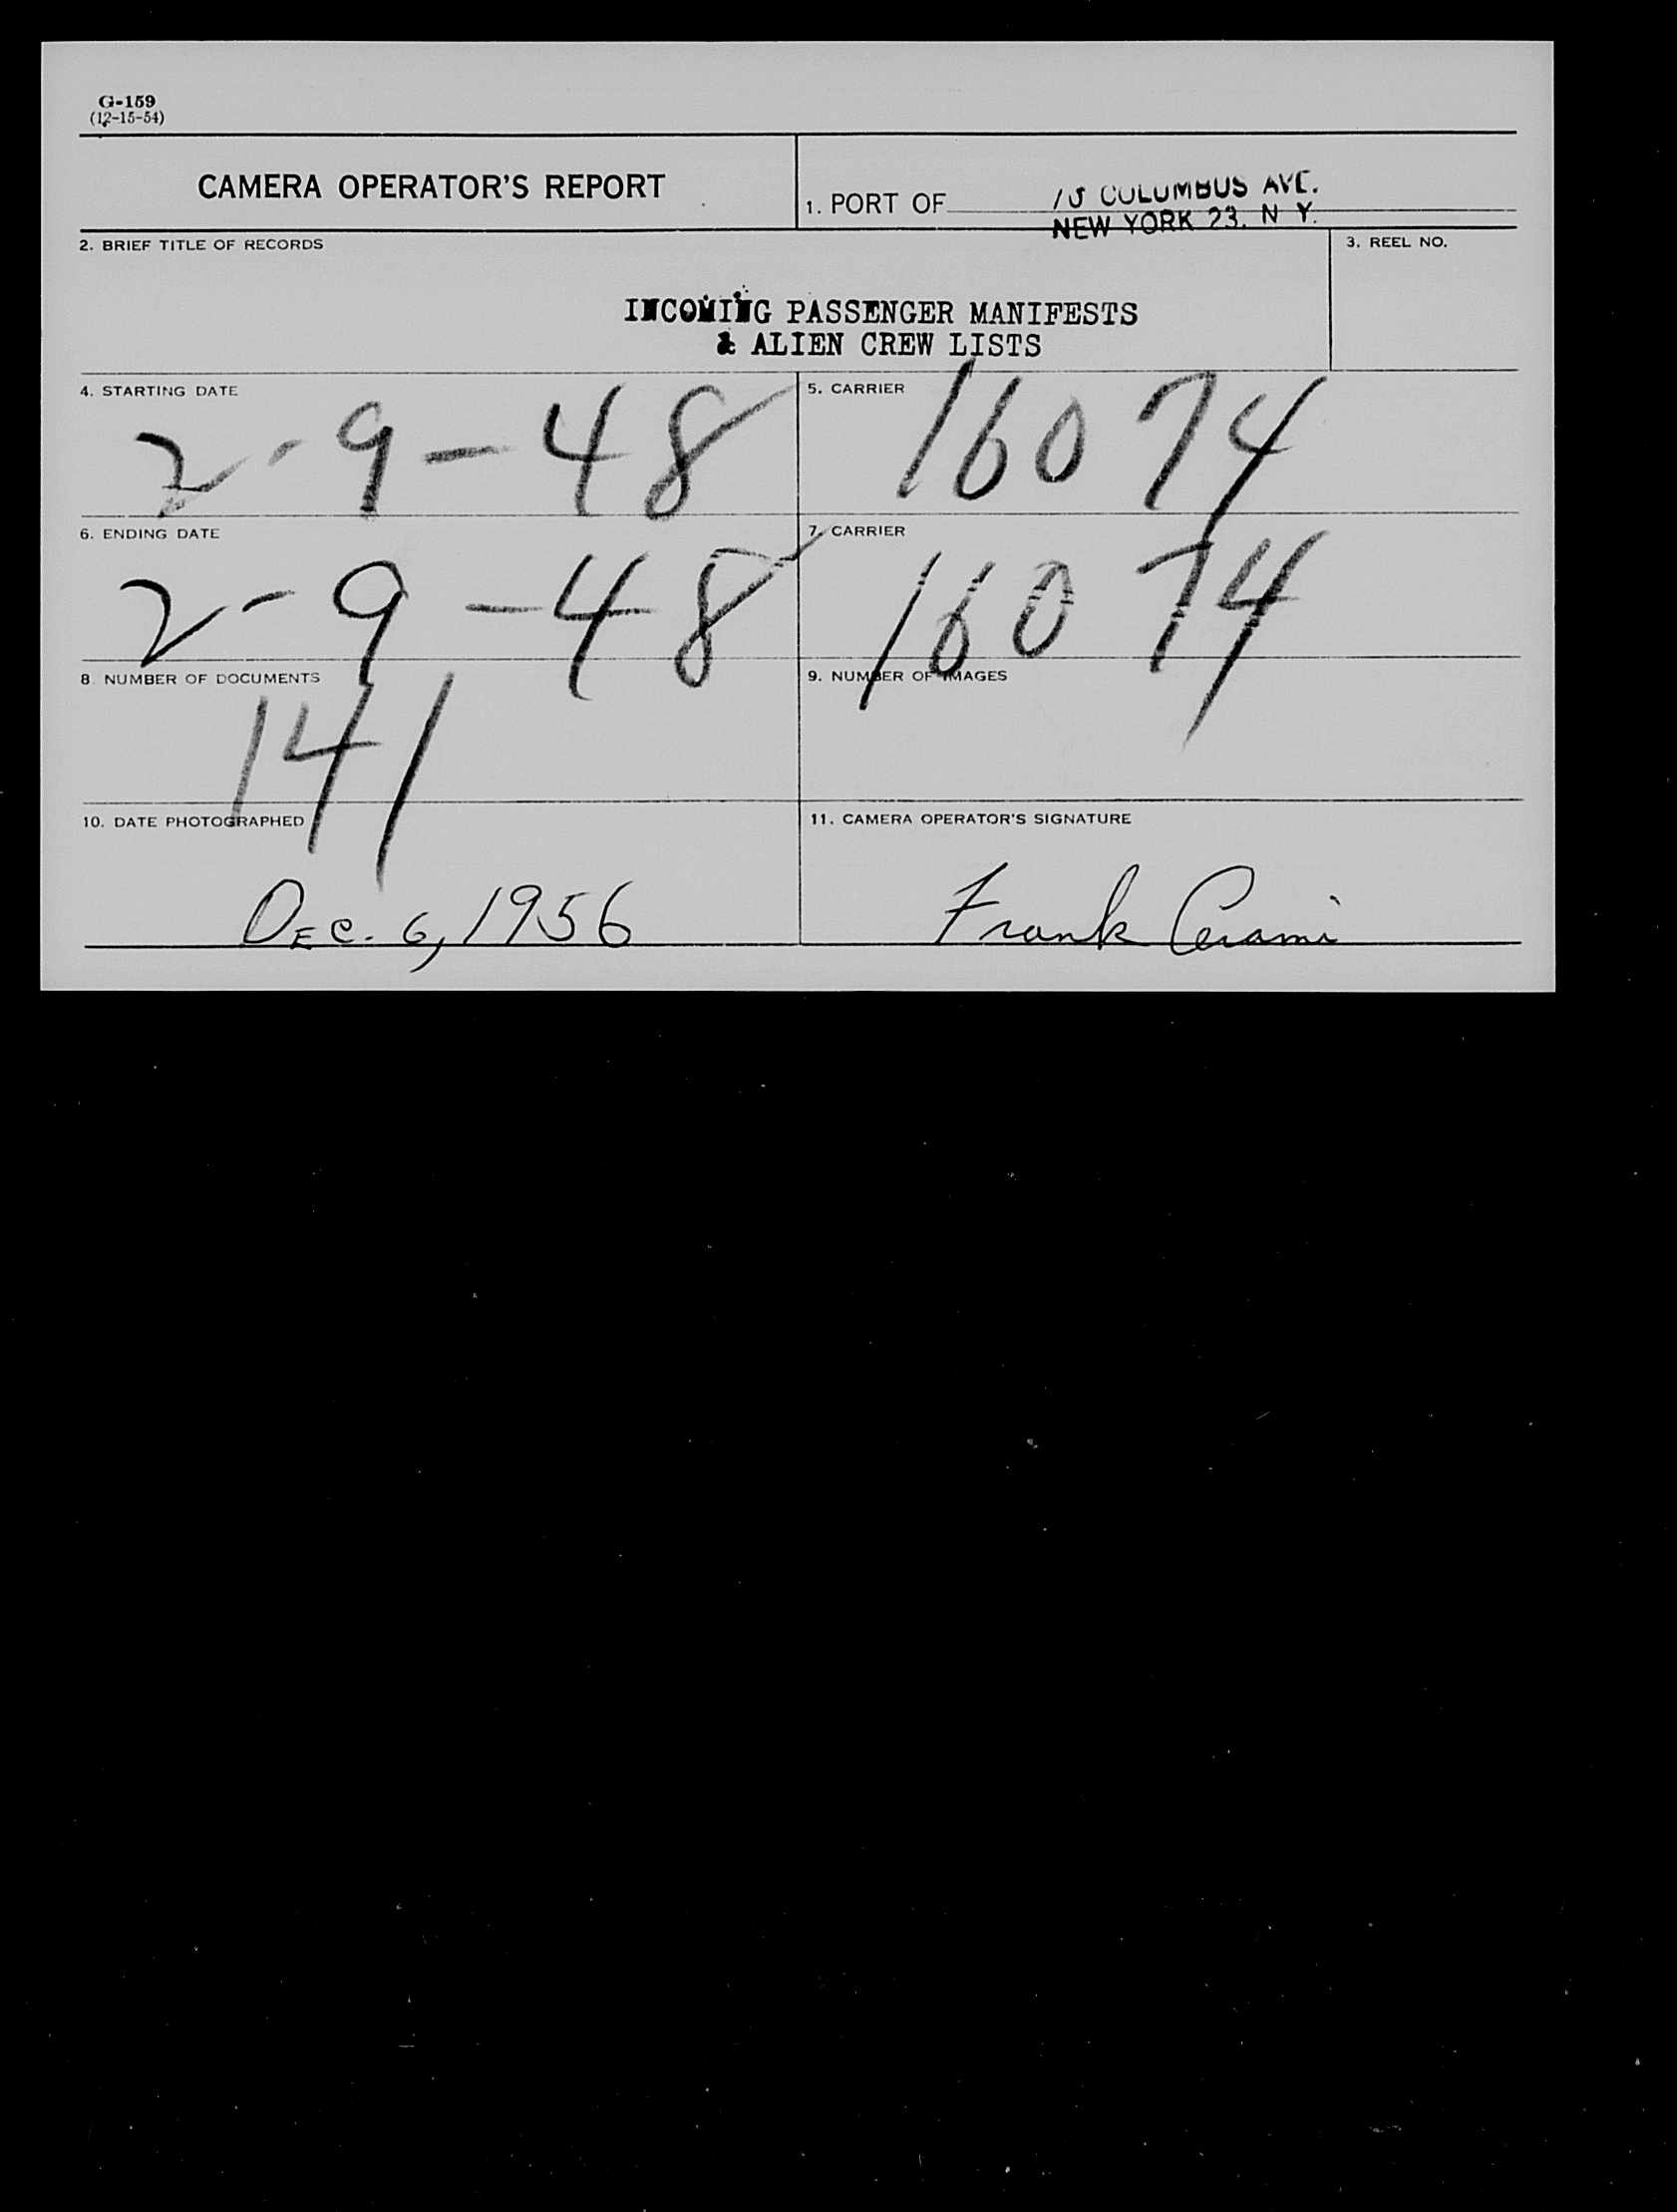 G-159
(12-15-54)
CAMERA OPERATOR'S REPORT
1. PORT OF
COLUMBUS AVE.
NEW YORK 23. N Y.
2. BRIEF TITLE OF RECORDS
3. REEL NO.
INCOMING PASSENGER MANIFESTS
& ALIEN CREW LISTS
4. STARTING DATE
2-9-48
5. CARRIER
16074
6. ENDING DATE
2-9-48
7. CARRIER
16074
8. NUMBER OF DOCUMENTS
141
9. NUMBER OF IMAGES
10. DATE PHOTOGRAPHED
DEC. 6, 1956
11. CAMERA OPERATOR'S SIGNATURE
Frank Cerami